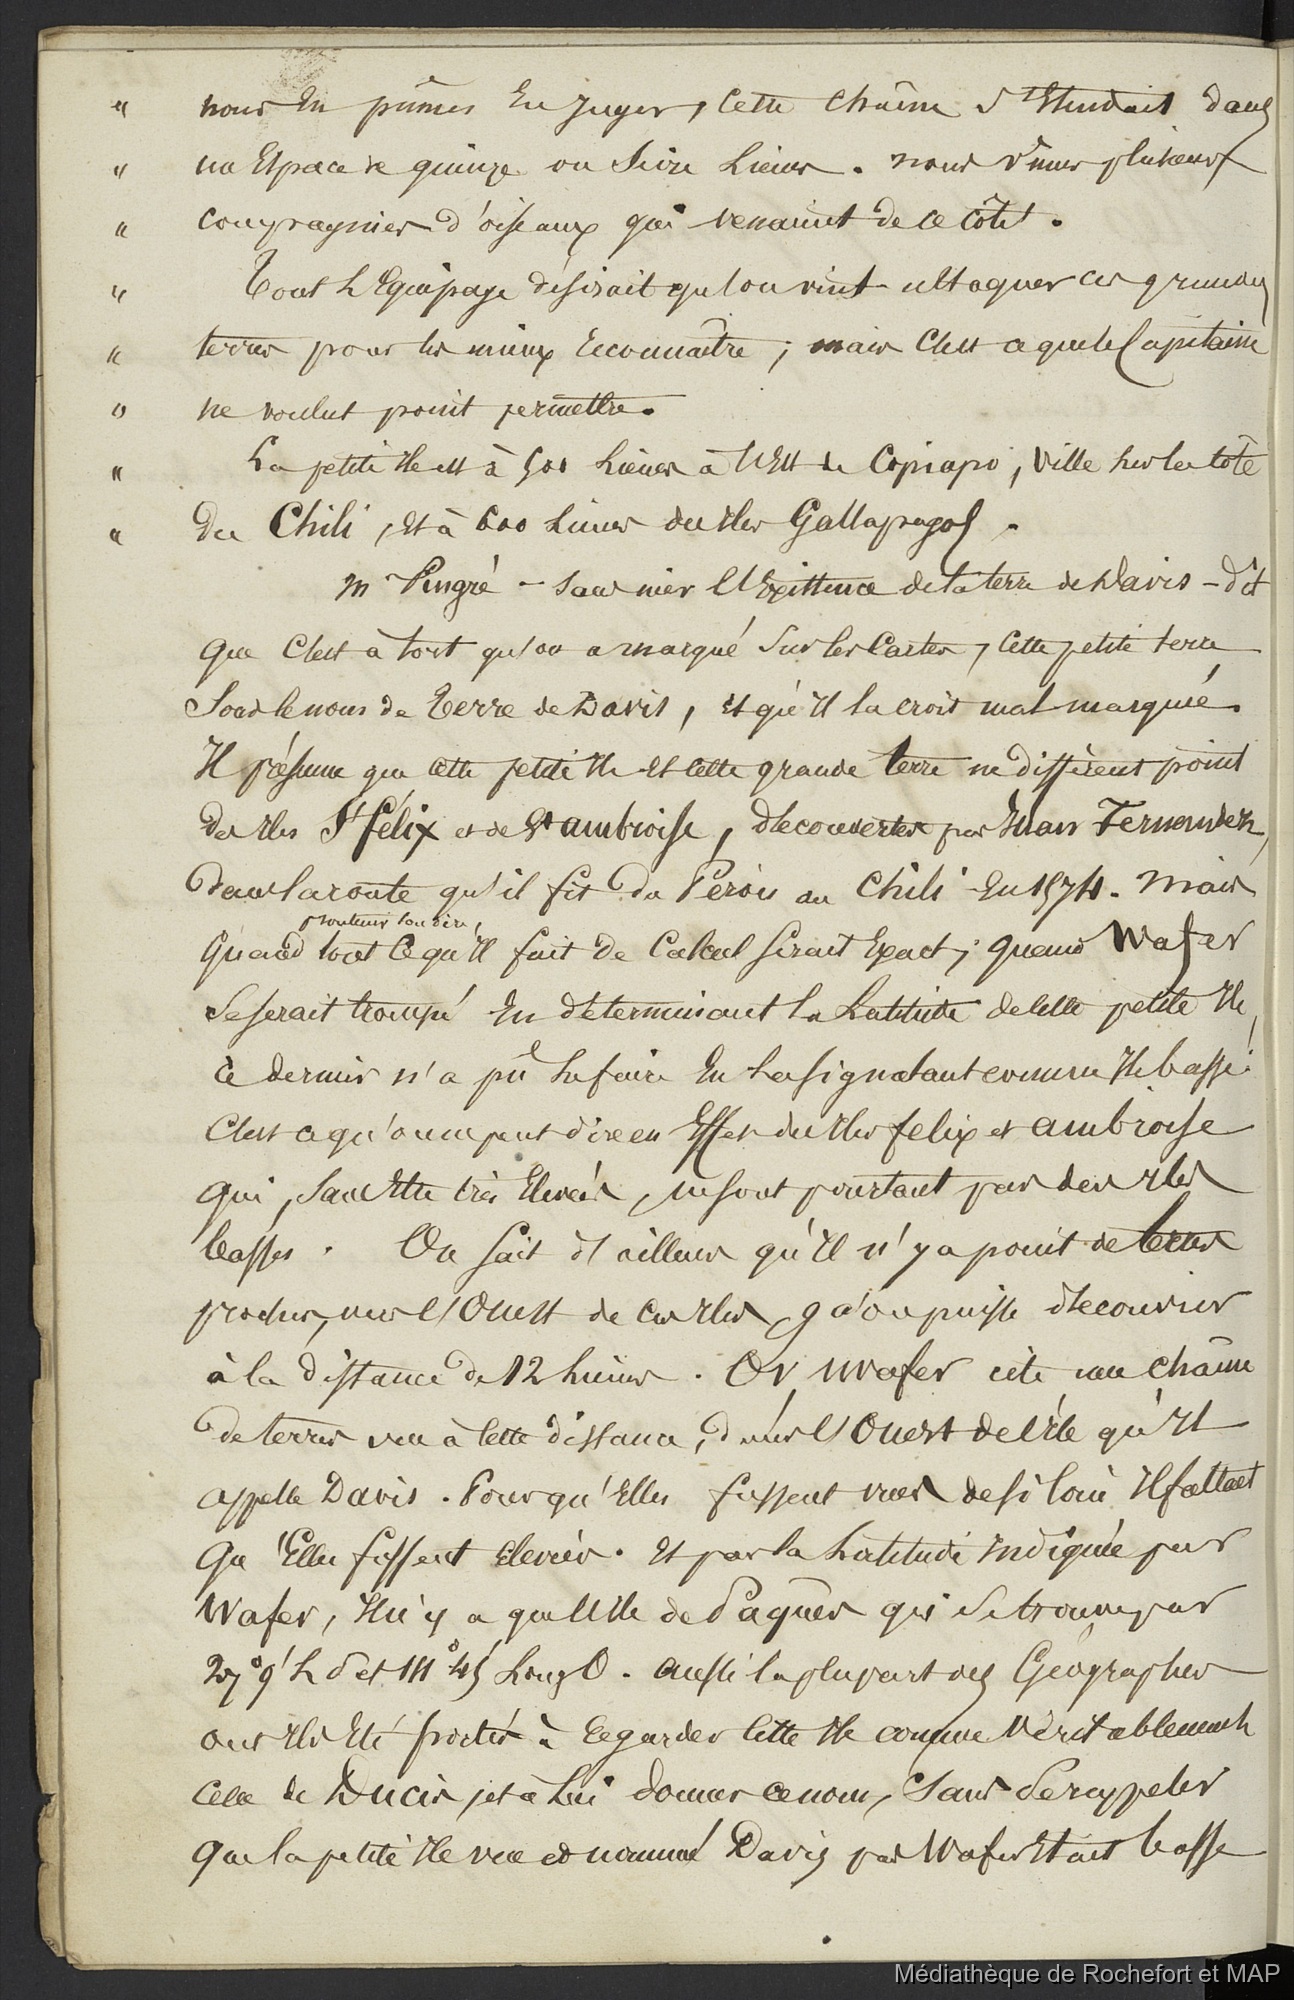 " nous en pûmes en juger, cette chaîne s'étendait dans
" un Espace de quinze ou seize Lieues. nous vîmes plusieurs
" compagnies d'oiseaux qui venaient de ce côté.
" Tout l'Equipage désirait qu'on vint attaquer ces grandes
" terres pour les mieux reconnaître ; mais c'est ce que le Capitaine
" ne voulut point permettre.
" La petite Ile est à 500 Lieues à l'Est de Copiapo, Ville sur la Côte
" du Chili, et à 600 Lieues des Iles Gallapagos.
m Pingré - sans nier l'Existence de la terre de Davis - dit
que c'est à tort qu'on a marqué sur les Cartes, cette petite terre
sous le nom de terre de Davis, et qu'il la croit mal marquée.
Il présume que cette petite Ile et cette grande terre ne différent point
des Iles St félix et de St ambroise, découvertes par Juan Fernandez,
dans la route qu'il fit du Pérou au Chili en 1574. Mais
quand tout ce qu'il fait de Calcul pour soutenir son dire, serait Exact ; quand Wafer
se serait trompé en déterminant la Latitude de cette petite Ile,
ce dernier n'a pû le faire en la signalant comme Ile basse !
C'est ce qu'on ne peut dire en Effet des Iles felix et ambroise
qui, sans Etre très Elevées, ne sont pourtant pas des Iles
basses. On sait d'ailleurs qu'il n'y a point de terres
proches, vers l'Ouest de ces Iles, qu'on puisse découvrir
à la distance de 12 Lieues. Or Wafer cite une chaîne
de terres vue à cette distance, vers l'Ouest de l'Ile qu'il
appelle Davis. Pour qu'Elles fussent vues de si loin il fallait
qu'Elles fussent élevées. Et par la Latitude indiquée par
Wafer, il n'y a que l'Ile de Pâques qui se trouve par
27° 9' L S et 111° 45' Long O. aussi la plupart des Géographes
ont ils Eté portés à regarder cette Ile comme véritablement
celle de Davis, et à lui donner ce nom, sans se rappeler
que la petite Ile vue et nommée Davis par Wafer Etait basse
Médiathèque de Rochefort et MAP